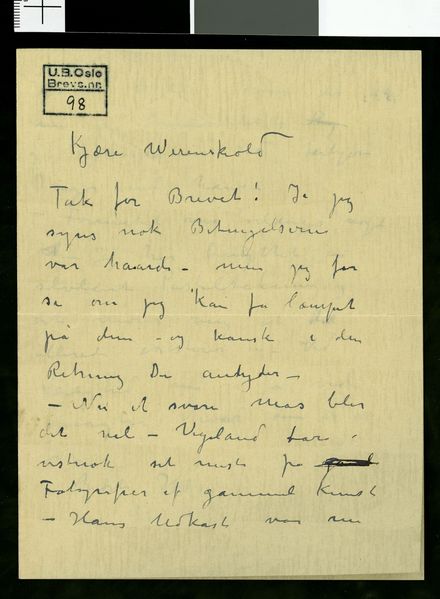 U.B. Oslo
Brevs. nr.
98
Kjære Werenskiold
Tak for Brevet! Ja jeg
syns nok Betingelserne
var haarde – men jeg får
se om jeg kan få lempet
på dem – og kanske i den
Retning De antyder –
– Nu et svare Mas blir
det vel – Vigeland har
vistnok set mest på
Fotografier af gammel Kunst
– Hans Udkast var nu